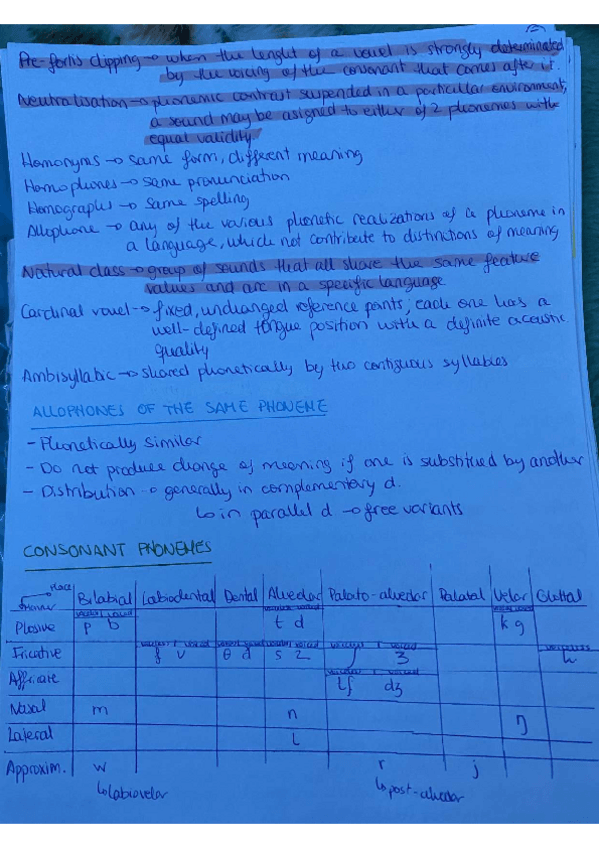 Pre-fortis clipping → when the lenght of a vowel is strongly determinated
by the voicing of the consonant that comes after it.
Neutralisation → phonemic contrast suspended in a particular environment,
a sound may be asigned to either of 2 phonemes with
equal validity
Homonyms → same form, different meaning
Homophones → same pronunciation
Homographs → same spelling
Allophone → any of the various phonetic realizations of a phoneme in
a language, which not contribute to distinctions of meaning
Natural class → group of sounds that all share the same feature
values and are in a specific language
Cardinal vowel → fixed, unchanged reference points; each one has a
well-defined tongue position with a definite acoustic
quality
Ambisyllabic → shared phonetically by two contiguous syllables
ALLOPHONES OF THE SAME PHONEME
- Phonetically similar
- Do not produce change of meaning if one is substitued by another
- Distribution → generally in complementary d.
↳ in parallel d → free variants
CONSONANT PHONEMES
Place
Manner Bilabial Labiodental Dental Alveolar Palato-alveolar Palatal Velar Glottal
voiceless voiced voiceless voiced voiceless voiced
Plosive p b t d k g
voiceless voiced voiceless voiced voiceless voiced voiceless voiced voiceless
Fricative f v θ ð s z ʃ ʒ h
voiceless voiced
Affricate tʃ dʒ
Nasal m n ŋ
Lateral l
Approxim. w r j
↳ Labiovelar ↳ post-alveolar